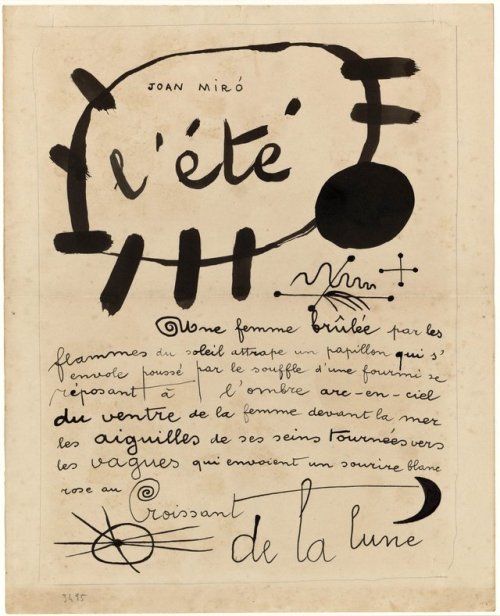 JOAN MIRÓ
l'été
Une femme brûlée par les
flammes du soleil attrape un papillon qui s'
envole poussé par le souffle d'une fourmi se
réposant à l'ombre arc-en-ciel
du ventre de la femme devant la mer
les aiguilles de ses seins tournées vers
les vagues qui envoient un sourire blanc
rose au Croissant
de la lune
3495